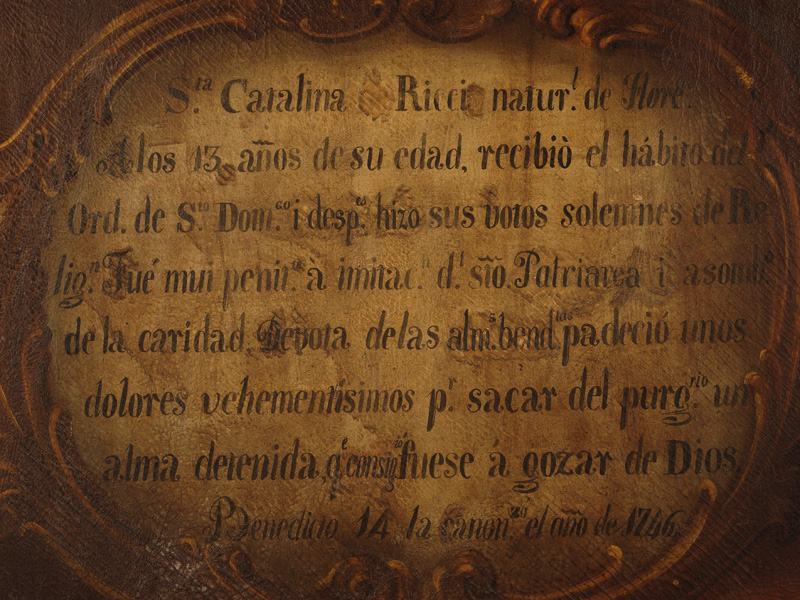 S.ta Catalina Ricci natur.l de Flore.
A los 13 años de su edad, recibiò el hábito del
Ord. de S.to Dom.co i desp.s hizo sus votos solemnes de Re
lig.n Fué mui penit.te à imitac.n d.l sto. Patriarca i asomb.o
de la caridad. Devota de las alm.s bend.tas padeció unos
dolores vehementísimos p.r sacar del purg.rio un
alma detenida, q.e consig.to fuese á gozar de Dios.
Benedicto 14 la canon.zo el año de 1746.